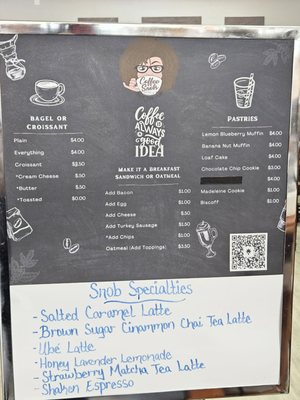 Coffee
Snob
Coffee
IS
ALWAYS
A
good
IDEA
BAGEL OR
CROISSANT
Plain $4.00
Everything $4.00
Croissant $3.50
*Cream Cheese $.50
*Butter $.50
*Toasted $0.00
MAKE IT A BREAKFAST
SANDWICH OR OATMEAL
Add Bacon $1.00
Add Egg $1.00
Add Cheese $.50
Add Turkey Sausage $1.50
*Add Chips $1.00
Oatmeal (Add Toppings) $3.50
PASTRIES
Lemon Blueberry Muffin $4.00
Banana Nut Muffin $4.00
Loaf Cake $4.00
Chocolate Chip Cookie $3.00
$4.00
Madeleine Cookie $1.00
Biscoff $1.00
Snob Specialties
- Salted Caramel Latte
- Brown Sugar Cinammon Chai Tea Latte
- Ubé Latte
- Honey Lavender Lemonade
- Strawberry Matcha Tea Latte
- Shaken Espresso